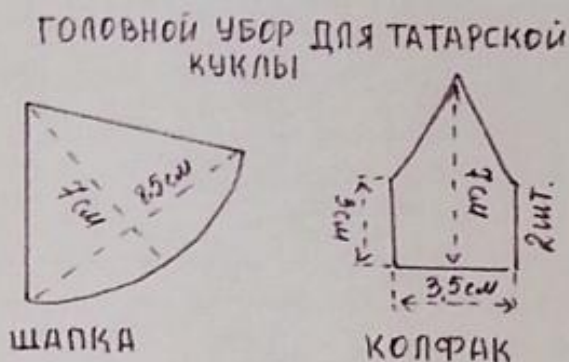 ГОЛОВНОЙ УБОР ДЛЯ ТАТАРСКОЙ
КУКЛЫ
7см
8.5см
ШАПКА
3см
7см
2шт.
3,5см
КОЛФАК